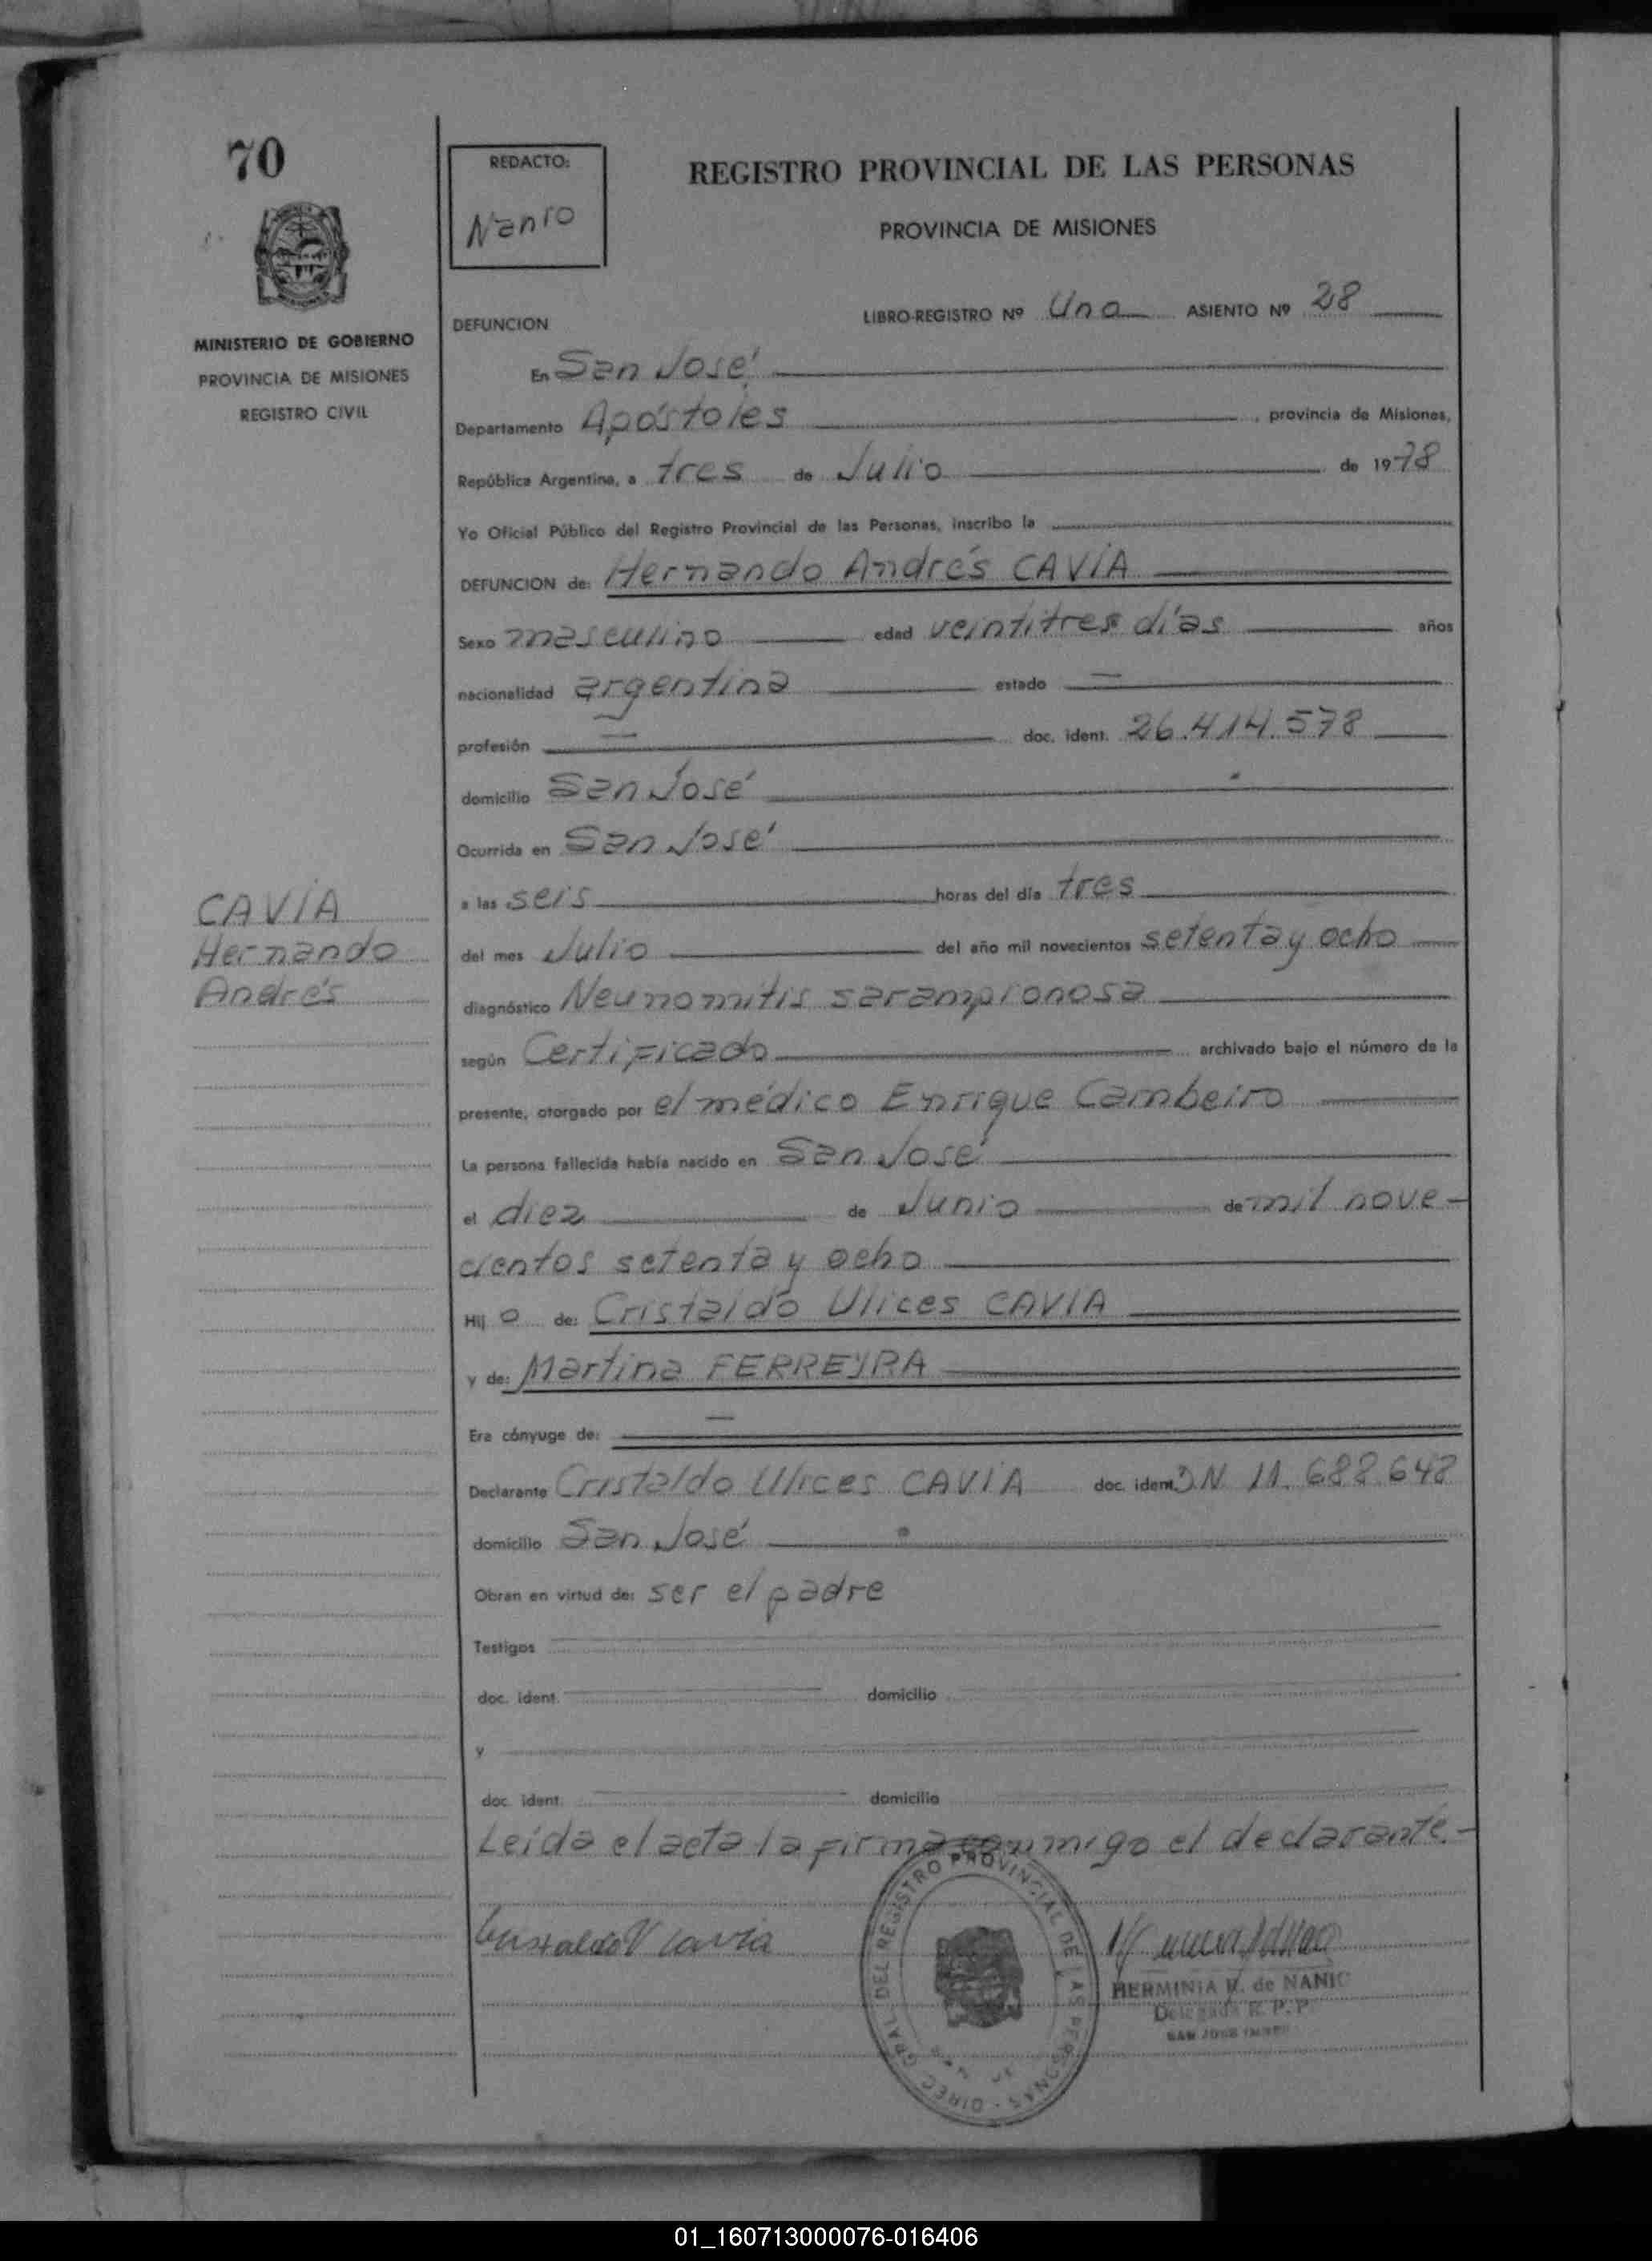 70
REDACTO:
Nanio
REGISTRO PROVINCIAL DE LAS PERSONAS
PROVINCIA DE MISIONES
MINISTERIO DE GOBIERNO
PROVINCIA DE MISIONES
REGISTRO CIVIL
DEFUNCION
LIBRO-REGISTRO Nº Uno ASIENTO Nº 28
En San José
Departamento Apóstoles , provincia de Misiones,
República Argentina, a tres de Julio de 1978
Yo Oficial Público del Registro Provincial de las Personas, inscribo la
DEFUNCION de: Hernando Andrés CAVIA
Sexo masculino edad veintitres días años
nacionalidad argentina estado —
profesión — doc. ident. 26.414.578
domicilio San José
Ocurrida en San José
a las seis horas del día tres
CAVIA
Hernando
Andrés
del mes Julio del año mil novecientos setenta y ocho
diagnóstico Neunomitis sarampionosa
según Certificado archivado bajo el número de la
presente, otorgado por el médico Enrique Cambeiro
La persona fallecida había nacido en San José
el diez de Junio de mil nove-
cientos setenta y ocho
Hij o de: Cristaldo Ulices CAVIA
y de: Martina FERREYRA
Era cónyuge de: —
Declarante Cristaldo Ulices CAVIA doc. ident. D.N. 11.688.648
domicilio San José
Obran en virtud de: ser el padre
Testigos
doc. ident. domicilio
y
doc. ident. domicilio
Leida el acta la firma conmigo el declarante.-
Cristaldo U Cavia
DIREC. GRAL. DEL REGISTRO PROVINCIAL DE LAS PERSONAS
HERMINIA R. de NANIO
Delegada R. P. P.
SAN JOSE
01_160713000076-016406